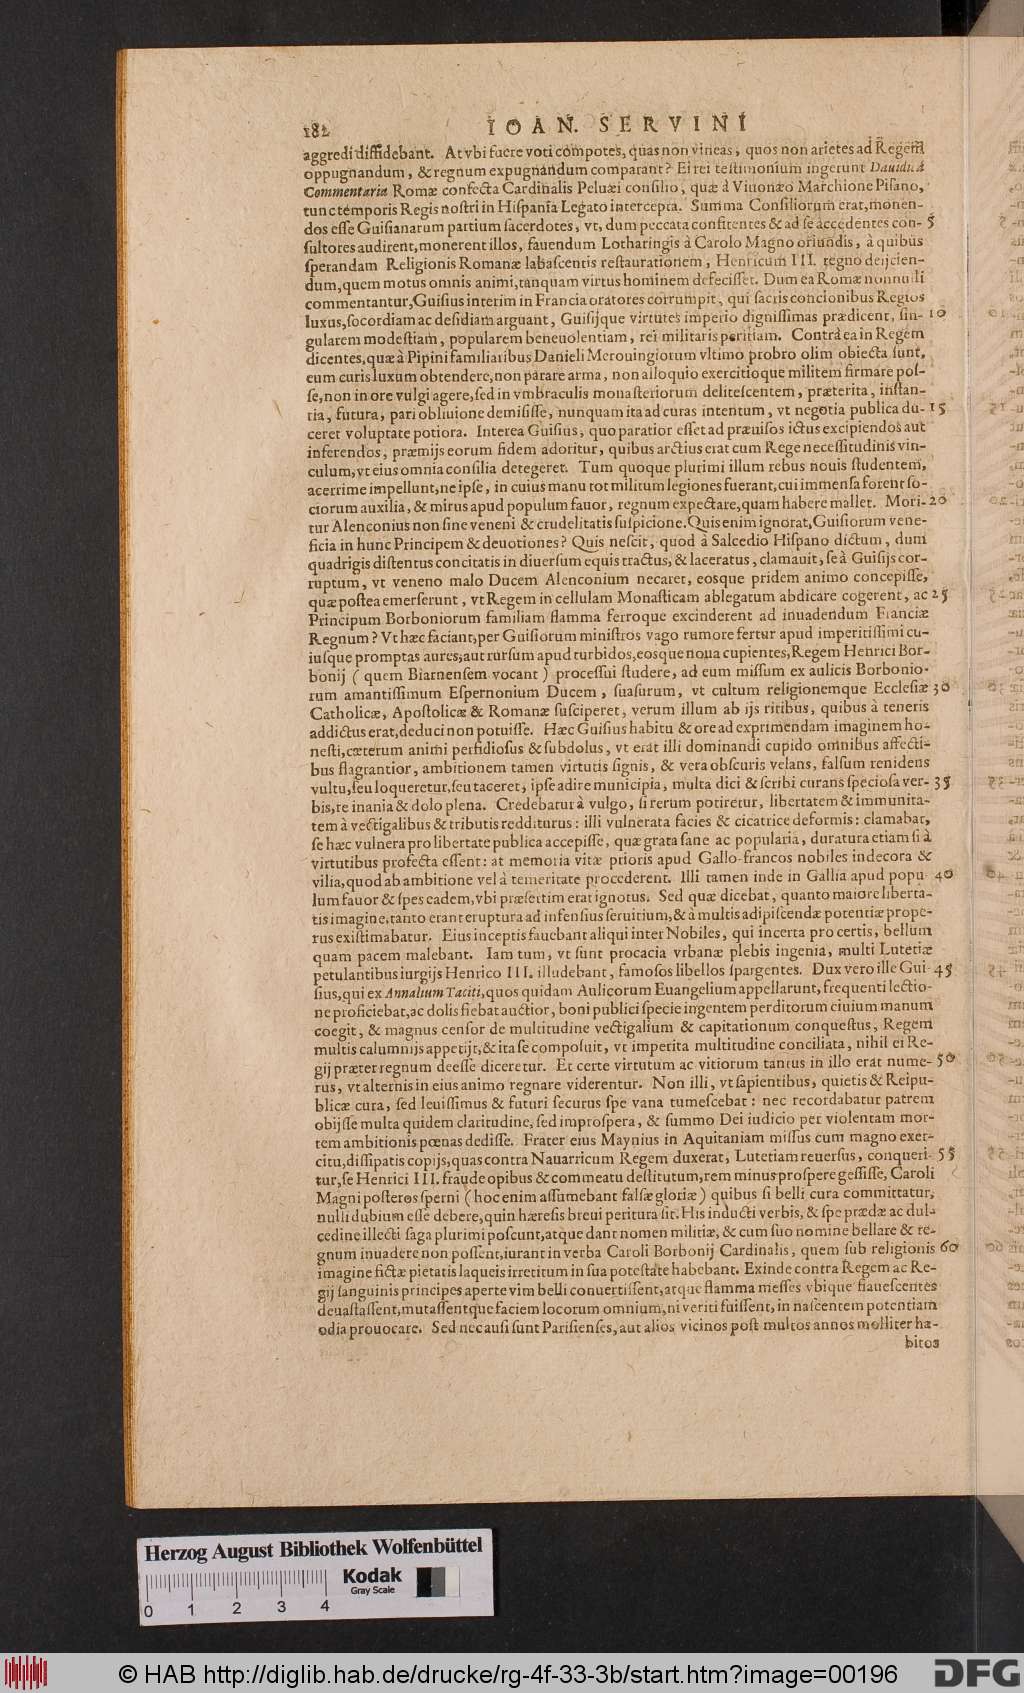 182 IOAN. SERVINI
aggredi diffidebant. At vbi fuere voti compotes, quas non vineas, quos non arietes ad Regem
oppugnandum, & regnum expugnandum comparant? Ei rei testimonium ingerunt Dauidis
Commentaria Romæ confecta Cardinalis Peluæi consilio, quæ à Viuonæo Marchione Pisano,
tunc temporis Regis nostri in Hispania Legato intercepta. Summa Consiliorum erat, monen-
dos esse Guisianarum partium sacerdotes, vt, dum peccata confitentes & ad se accedentes con- 5
sultores audirent, monerent illos, fauendum Lotharingis à Carolo Magno oriundis, à quibus
sperandam Religionis Romanæ labascentis restaurationem, Henricum III. regno deijcien-
dum, quem motus omnis animi, tanquam virtus hominem defecisset. Dum ea Romæ nonnulli
commentantur, Guisius interim in Francia oratores corrumpit, qui sacris concionibus Regios
luxus, socordiam ac desidiam arguant, Guisijque virtutes imperio dignissimas prædicent, sin- 10
gularem modestiam, popularem beneuolentiam, rei militaris peritiam. Contrà ea in Regem
dicentes, quæ à Pipini familiaribus Danieli Merouingiorum vltimo probro olim obiecta sunt,
eum curis luxum obtendere, non parare arma, non alloquio exercitioque militem firmare pos-
se, non in ore vulgi agere, sed in vmbraculis monasteriorum delitescentem, præterita, instan-
tia, futura, pari obliuione demisisse, nunquam ita ad curas intentum, vt negotia publica du- 15
ceret voluptate potiora. Interea Guisius, quo paratior esset ad præuisos ictus excipiendos aut
inferendos, præmijs eorum fidem adoritur, quibus arctius erat cum Rege necessitudinis vin-
culum, vt eius omnia consilia detegeret. Tum quoque plurimi illum rebus nouis studentem,
acerrime impellunt, ne ipse, in cuius manu tot militum legiones fuerant, cui immensa forent so-
ciorum auxilia, & mirus apud populum fauor, regnum expectare, quam habere mallet. Mori- 20
tur Alenconius non sine veneni & crudelitatis suspicione. Quis enim ignorat, Guisiorum vene-
ficia in hunc Principem & deuotiones? Quis nescit, quod à Salcedio Hispano dictum, dum
quadrigis distentus concitatis in diuersum equis tractus, & laceratus, clamauit, se à Guisijs cor-
ruptum, vt veneno malo Ducem Alenconium necaret, eosque pridem animo concepisse,
quæ postea emerserunt, vt Regem in cellulam Monasticam ablegatum abdicare cogerent, ac 25
Principum Borboniorum familiam flamma ferroque excinderent ad inuadendum Franciæ
Regnum? Vt hæc faciant, per Guisiorum ministros vago rumore fertur apud imperitissimi cu-
iusque promptas aures, aut rursum apud turbidos, eosque noua cupientes, Regem Henrici Bor-
bonij ( quem Biarnensem vocant ) processui studere, ad eum missum ex aulicis Borbonio-
rum amantissimum Espernonium Ducem, suasurum, vt cultum religionemque Ecclesiæ 30
Catholicæ, Apostolicæ & Romanæ susciperet, verum illum ab ijs ritibus, quibus à teneris
addictus erat, deduci non potuisse. Hæc Guisius habitu & ore ad exprimendam imaginem ho-
nesti, cæterum animi perfidiosus & subdolus, vt erat illi dominandi cupido omnibus affecti-
bus flagrantior, ambitionem tamen virtutis signis, & vera obscuris velans, falsum renidens
vultu, seu loqueretur, seu taceret, ipse adire municipia, multa dici & scribi curans speciosa ver- 35
bis, re inania & dolo plena. Credebatur à vulgo, si rerum potiretur, libertatem & immunita-
tem à vectigalibus & tributis redditurus: illi vulnerata facies & cicatrice deformis: clamabat,
se hæc vulnera pro libertate publica accepisse, quæ grata sane ac popularia, duratura etiam si à
virtutibus profecta essent: at memoria vitæ prioris apud Gallo-francos nobiles indecora &
vilia, quod ab ambitione vel à temeritate procederent. Illi tamen inde in Gallia apud popu- 40
lum fauor & spes eadem, vbi præsertim erat ignotus. Sed quæ dicebat, quanto maiore liberta-
tis imagine, tanto erant eruptura ad infensius seruitium, & à multis adipiscendæ potentiæ prope-
rus existimabatur. Eius inceptis fauebant aliqui inter Nobiles, qui incerta pro certis, bellum
quam pacem malebant. Iam tum, vt sunt procacia vrbanæ plebis ingenia, multi Lutetiæ
petulantibus iurgijs Henrico III. illudebant, famosos libellos spargentes. Dux vero ille Gui- 45
sius, qui ex Annalium Taciti, quos quidam Aulicorum Euangelium appellarunt, frequenti lectio-
ne proficiebat, ac dolis fiebat auctior, boni publici specie ingentem perditorum ciuium manum
coegit, & magnus censor de multitudine vectigalium & capitationum conquestus, Regem
multis calumnijs appetijt, & ita se composuit, vt imperita multitudine conciliata, nihil ei Re-
gij præter regnum deesse diceretur. Et certe virtutum ac vitiorum tantus in illo erat nume- 50
rus, vt alternis in eius animo regnare viderentur. Non illi, vt sapientibus, quietis & Reipu-
blicæ cura, sed leuissimus & futuri securus spe vana tumescebat: nec recordabatur patrem
obijsse multa quidem claritudine, sed improspera, & summo Dei iudicio per violentam mor-
tem ambitionis pœnas dedisse. Frater eius Maynius in Aquitaniam missus cum magno exer-
citu, dissipatis copijs, quas contra Nauarricum Regem duxerat, Lutetiam reuersus, conqueri- 55
tur, se Henrici III. fraude opibus & commeatu destitutum, rem minus prospere gessisse, Caroli
Magni posteros sperni ( hoc enim assumebant falsæ gloriæ ) quibus si belli cura committatur,
nulli dubium esse debere, quin hæresis breui peritura sit. His inducti verbis, & spe prædæ ac dul-
cedine illecti saga plurimi poscunt, atque dant nomen militiæ, & cum suo nomine bellare & re-
gnum inuadere non possent, iurant in verba Caroli Borbonij Cardinalis, quem sub religionis 60
imagine fictæ pietatis laqueis irretitum in sua potestate habebant. Exinde contra Regem ac Re-
gij sanguinis principes aperte vim belli conuertissent, atque flamma messes vbique flauescentes
deuastassent, mutassentque faciem locorum omnium, ni veriti fuissent, in nascentem potentiam
odia prouocare. Sed nec ausi sunt Parisienses, aut alios vicinos post multos annos molliter ha-
bitos
Herzog August Bibliothek Wolfenbüttel
Kodak
Gray Scale
0 1 2 3 4
© HAB http://diglib.hab.de/drucke/rg-4f-33-3b/start.htm?image=00196 DFG